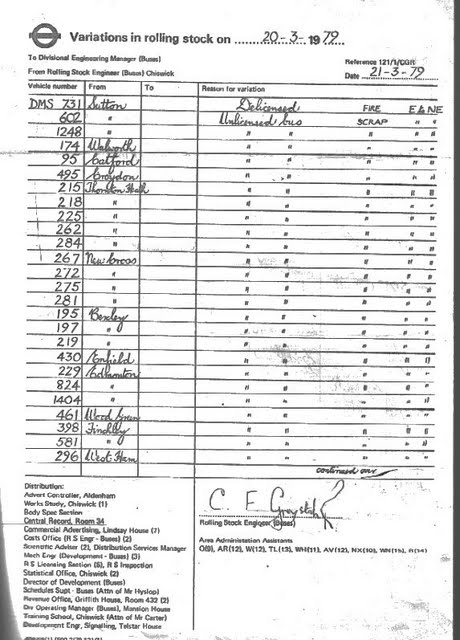 Variations in rolling stock on 20-3-1979
To Divisional Engineering Manager (Buses)
Reference 121/1/CGR
From Rolling Stock Engineer (Buses) Chiswick
Date 21-3-79
Vehicle number From To Reason for variation
DMS 731 Sutton Delicensed FIRE E&NE
602 " Unlicensed bus SCRAP " "
1248 " " " " " "
174 Walworth " " " " "
95 Catford " " " " "
495 Croydon " " " " "
215 Thornton Heath " " " " "
218 " " " " " "
225 " " " " " "
262 " " " " " "
284 " " " " " "
267 New Cross " " " " "
272 " " " " " "
275 " " " " " "
281 " " " " " "
195 Bexley " " " " "
197 " " " " " "
219 " " " " " "
430 Enfield " " " " "
229 Edmonton " " " " "
824 " " " " " "
1404 " " " " " "
461 Wood Green " " " " "
398 Finchley " " " " "
581 " " " " " "
296 West Ham " " " " "
continued over
Distribution:
Advert Controller, Aldenham
Works Study, Chiswick (1)
Body Spec Section
Central Record, Room 34
Commercial Advertising, Lindsay House (7)
Costs Office (R S Engr - Buses) (2)
Scientific Adviser (2), Distribution Services Manager
Mech Engr (Development - Buses) (3)
R S Licensing Section (5), R S Inspection
Statistical Office, Chiswick (2)
Director of Development (Buses)
Schedules Supt - Buses (Attn of Mr Hyslop)
Revenue Office, Griffith House, Room 432 (2)
Div Operating Manager (Buses), Mansion House
Training School, Chiswick (Attn of Mr Carter)
Development Engr, Signalling, Telstar House
C F
Rolling Stock Engineer (Buses)
Area Administration Assistants
AR(12), W(12), TL(13), WH(11), AV(12), NX(10),